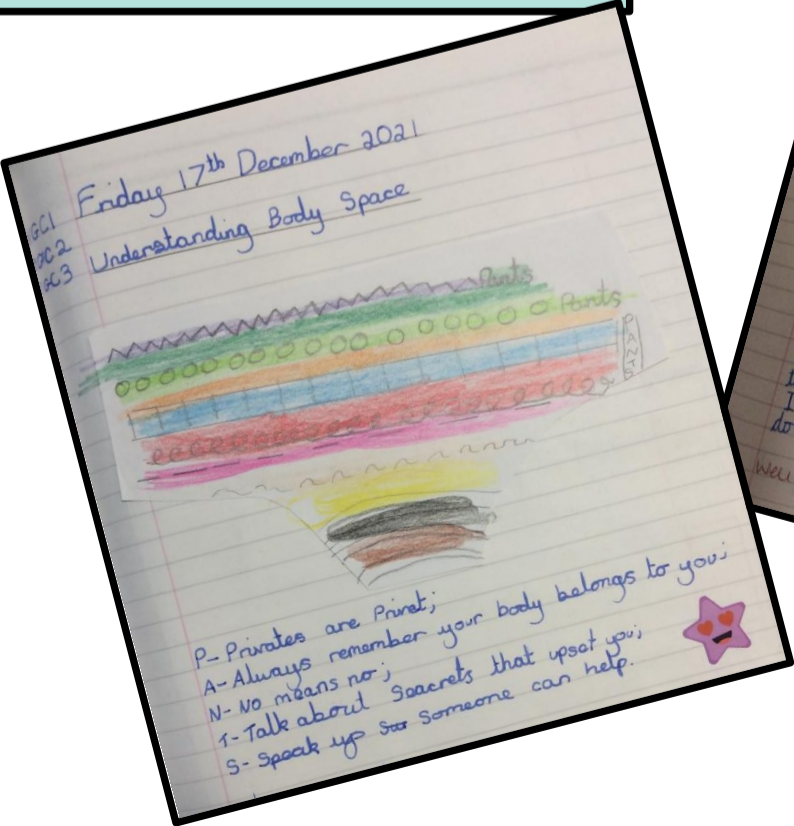 GC1
GC2
GC3
Friday 17th December 2021
Understanding Body Space
Pants
Pants
PANTS
P- Privates are Privet;
A- Always remember your body belongs to you;
N- No means no;
T- Talk about Seacrets that upset you;
S- Speak up someone can help.
I
do
Well